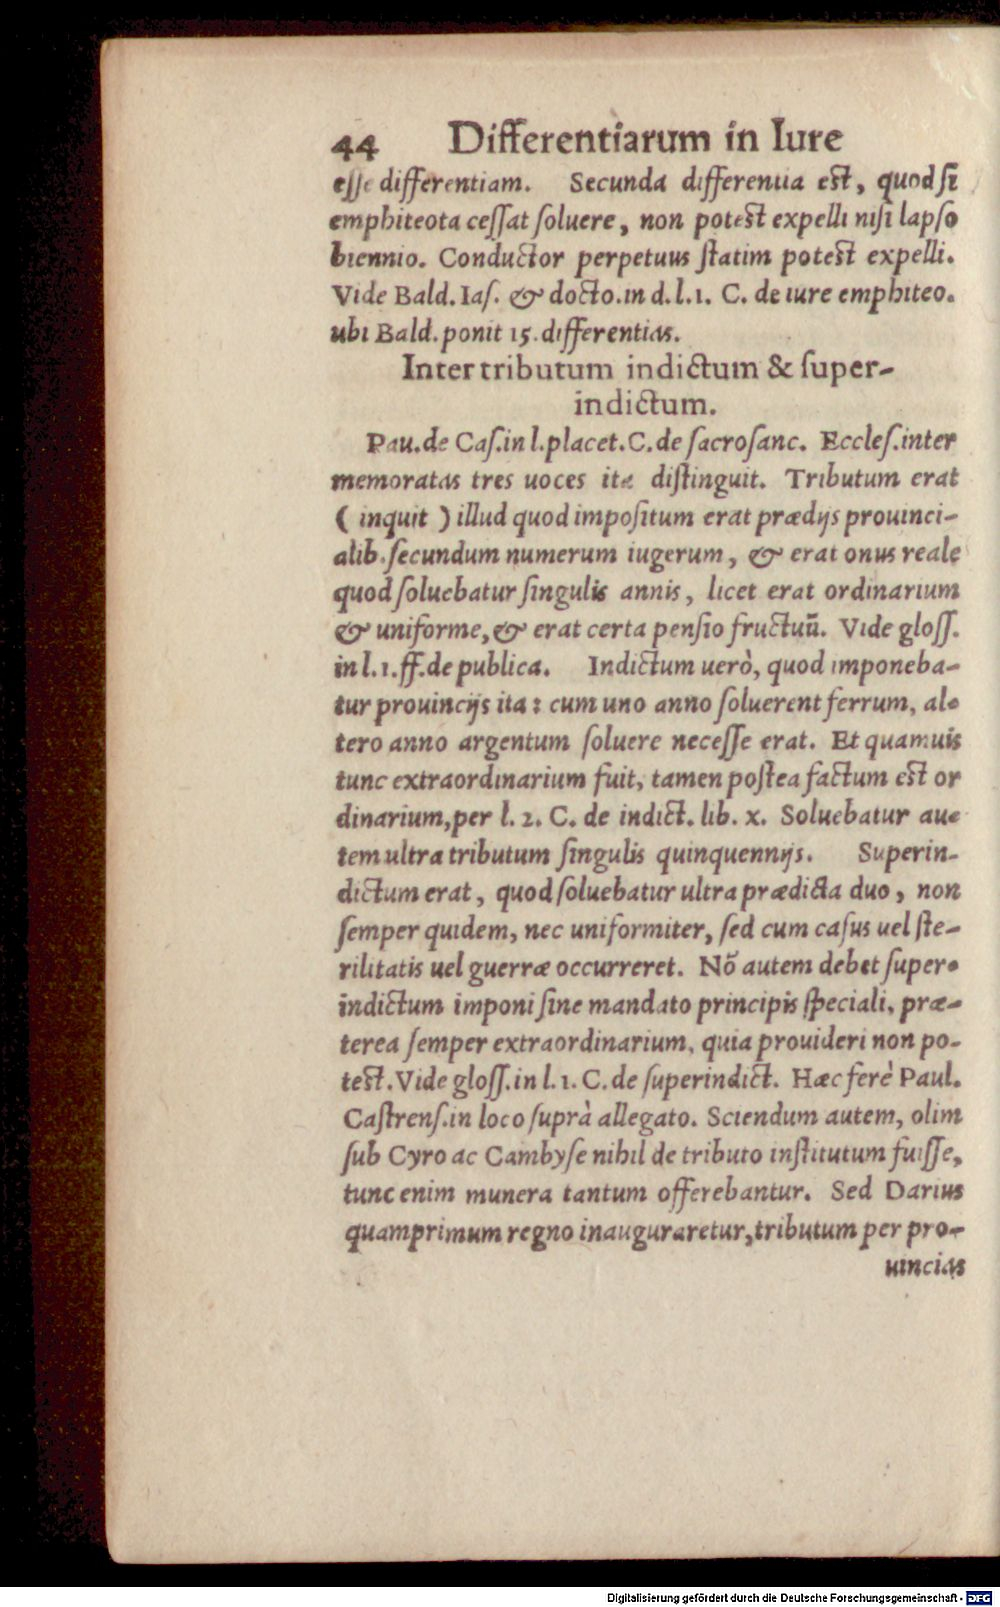 44 Differentiarum in Iure
esse differentiam. Secunda differentia est, quod si
emphiteota cessat soluere, non potest expelli nisi lapso
biennio. Conductor perpetuus statim potest expelli.
Vide Bald. Ias. & docto. in d. l. 1. C. de iure emphiteo.
ubi Bald. ponit 15. differentias.
Inter tributum indictum & super-
indictum.
Pau. de Cas. in l. placet. C. de sacrosanc. Eccles. inter
memoratas tres uoces ita distinguit. Tributum erat
( inquit ) illud quod impositum erat prædijs prouinci-
alib. secundum numerum iugerum, & erat onus reale
quod soluebatur singulis annis, licet erat ordinarium
& uniforme, & erat certa pensio fructuũ. Vide gloss.
in l. 1. ff. de publica. Indictum uerò, quod imponeba-
tur prouincijs ita: cum uno anno soluerent ferrum, al-
tero anno argentum soluere necesse erat. Et quamuis
tunc extraordinarium fuit, tamen postea factum est or
dinarium, per l. 2. C. de indict. lib. x. Soluebatur au-
tem ultra tributum singulis quinquennijs. Superin-
dictum erat, quod soluebatur ultra prædicta duo, non
semper quidem, nec uniformiter, sed cum casus uel ste-
rilitatis uel guerræ occurreret. Nõ autem debet super-
indictum imponi sine mandato principis speciali, præ-
terea semper extraordinarium, quia prouideri non po-
test. Vide gloss. in l. 1. C. de superindict. Hæc ferè Paul.
Castrens. in loco suprà allegato. Sciendum autem, olim
sub Cyro ac Cambyse nihil de tributo institutum fuisse,
tunc enim munera tantum offerebantur. Sed Darius
quamprimum regno inauguraretur, tributum per pro-
uincias
Digitalisierung gefördert durch die Deutsche Forschungsgemeinschaft - DFG